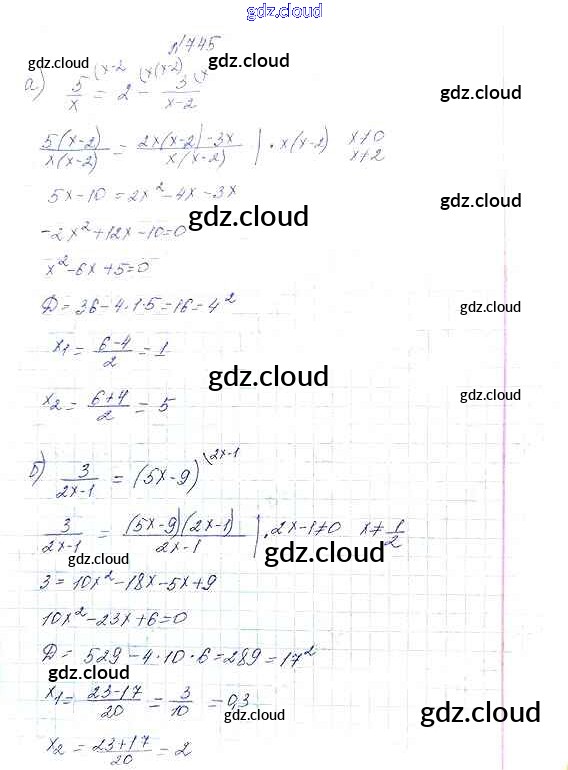 gdz.cloud
№745
gdz.cloud gdz.cloud
а) 5/x (x-2 = 2 (x(x-2) - 3/(x-2) (x gdz.cloud
5(x-2)/x(x-2) = 2x(x-2)-3x/x(x-2) | · x(x-2) x≠0 x≠2
5x-10 = 2x²-4x-3x
gdz.cloud gdz.cloud
-2x²+12x-10=0
x²-6x+5=0
D = 36-4·1·5=16=4² gdz.cloud
x1 = (6-4)/2 = 1
gdz.cloud gdz.cloud
x2 = (6+4)/2 = 5
б) 3/(2x-1) = (5x-9) (2x-1
3/(2x-1) = (5x-9)(2x-1)/(2x-1) | · 2x-1≠0 x≠1/2
gdz.cloud gdz.cloud
3 = 10x²-18x-5x+9
10x²-23x+6=0
D = 529-4·10·6=289=17²
gdz.cloud
x1 = (23-17)/20 = 3/10 = 0,3
gdz.cloud gdz.cloud
x2 = (23+17)/20 = 2